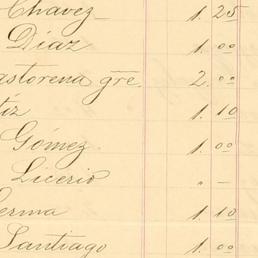 Chavez 1. 25
Díaz 1. 00
astorena gre. 2. 00
tiz 1. 10
Gómez. 1. 00
Licerio " —
erma 1. 10
Santiago 1. 00